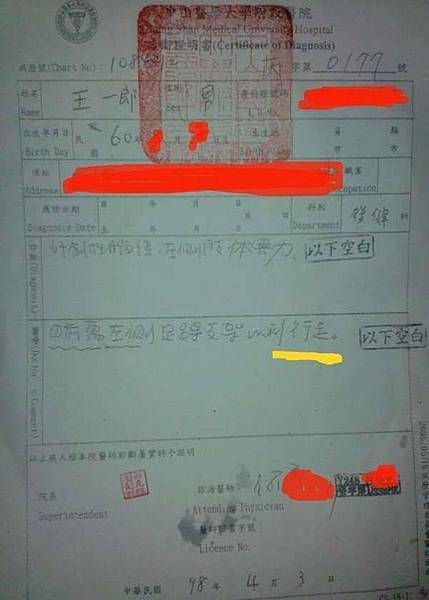 中山醫學大學附設醫院
Chung Shan Medical University Hospital
診斷證明書(Certificate of Diagnosis)
病歷號(Chart No): 字第 0177 號
姓名 Name 王一郎 性別 Sex 男 身份證號碼 I.D.No.
出生年月日 Birth Day 民 60年 月 日 出生地 省 縣 市 市
住址 Address 職業 Occupation
應診日期 Diagnosis Date 自 年 月 日 至 年 月 日 科別 Department 復健 科
診斷(Diagnosis) 外創性腦傷,左側肢体無力。以下空白
醫囑(Doctor's Comment) 目前需左側足踝支架以利行走。 以下空白
以上病人經本院醫師診斷屬實特予證明
院長 Superintendent
診治醫師: Attending Physician
醫師證書字號 Licence No.
中華民國 98 年 4 月 3 日